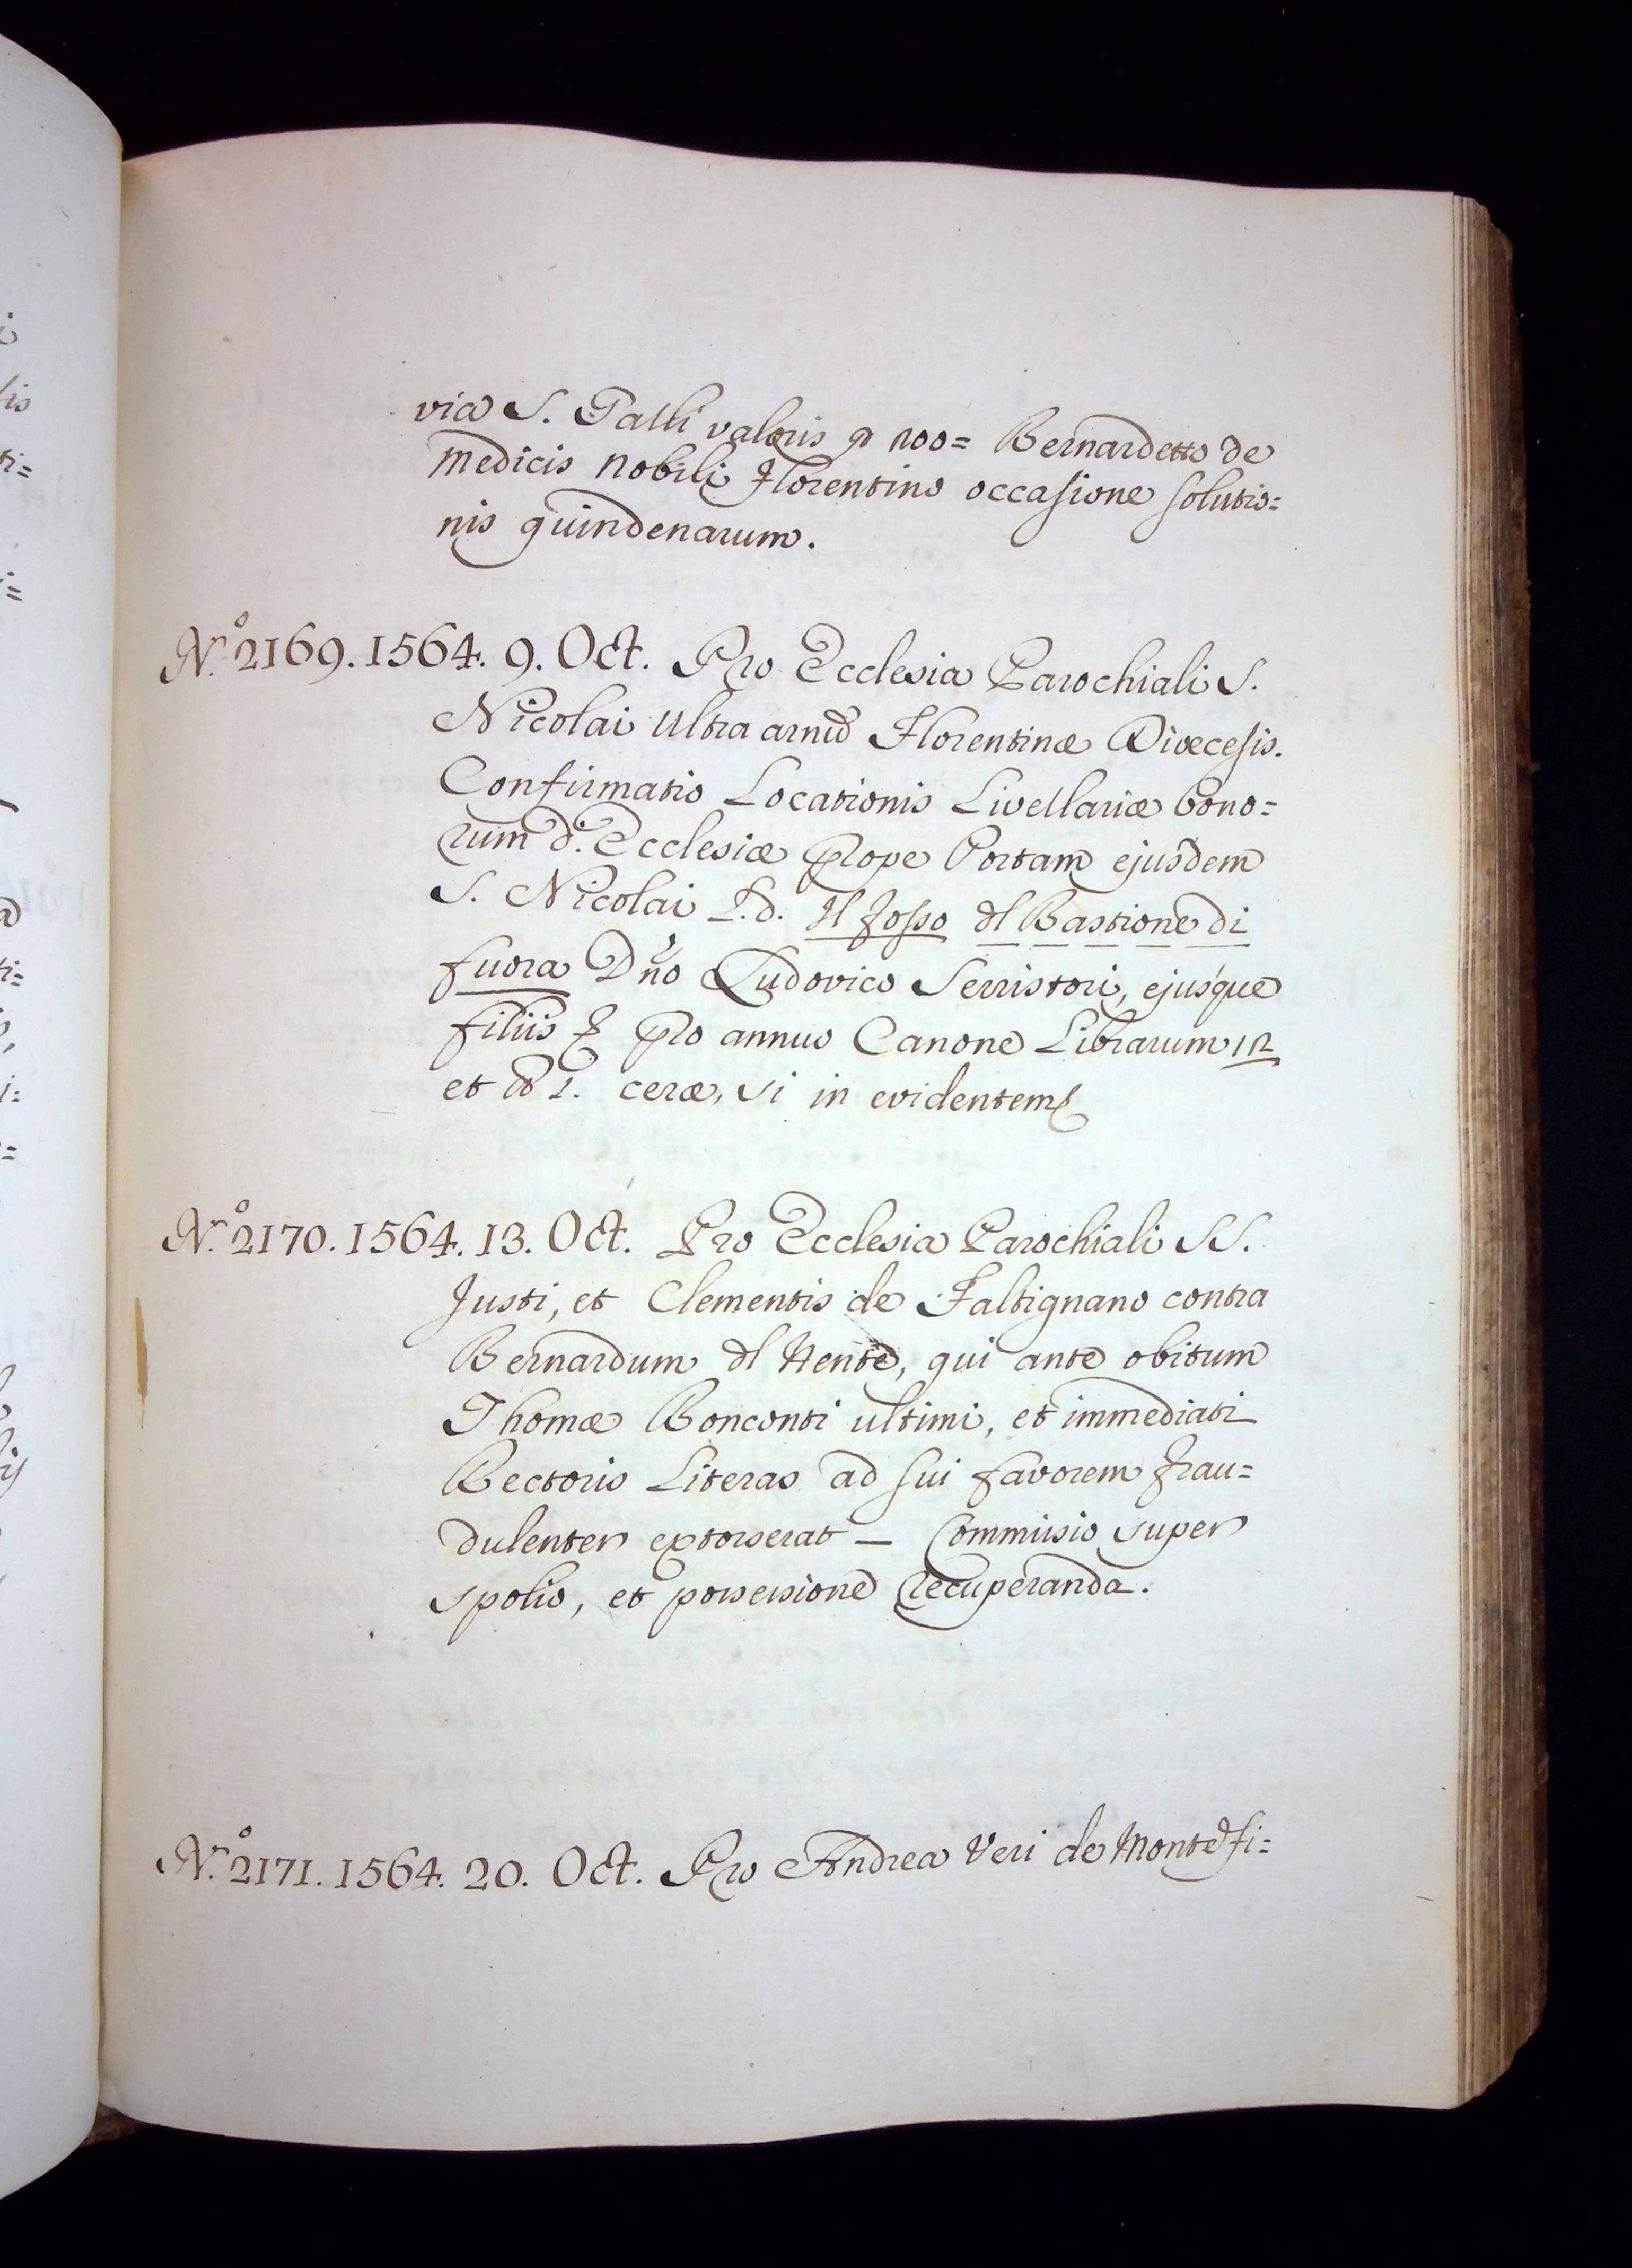 via S. Galli valoris 200= Bernardetto de
Medicis Nobili Florentino occasione solutio=
nis quindenarum.
N.º 2169. 1564. 9. Oct. Pro Ecclesia Parochiali S.
Nicolai Ultra arnū Florentinæ Diœcesis.
Confirmatio Locationis Livellariæ bono=
rum d. Ecclesiæ prope Portam ejusdem
S. Nicolai L.d. Il Fosso dl Bastione di
fuora Dño Ludovico Serristori, ejusque
filiis & pro annuo Canone Librarum 12
et 1. ceræ, si in evidentem
N.º 2170. 1564. 13. Oct. Pro Ecclesia Parochiali SS.
Justi, et Clementis de Faltignano contra
Bernardum dl Nente, qui ante obitum
Thomæ Bonconti ultimi, et immediati
Rectoris Literas ad sui favorem frau=
dulenter extorserat — Commissio super
spolio, et possessione recuperanda.
N.º 2171. 1564. 20. Oct. Pro Andrea Veri de Montefi=